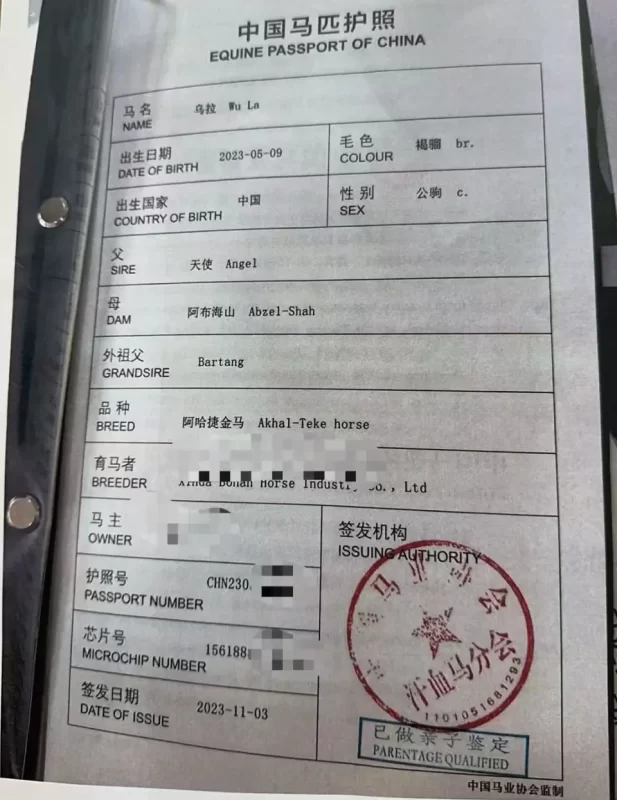 中国马匹护照
EQUINE PASSPORT OF CHINA
马名 乌拉 Wu La
NAME
出生日期 2023-05-09
DATE OF BIRTH
毛色 褐骝 br.
COLOUR
出生国家 中国
COUNTRY OF BIRTH
性别 公驹 c.
SEX
父 天使 Angel
SIRE
母 阿布海山 Abzel-Shah
DAM
外祖父 Bartang
GRANDSIRE
品种 阿哈捷金马 Akhal-Teke horse
BREED
育马者
BREEDER Horse Industry Co., Ltd
马主
OWNER
护照号 CHN230
PASSPORT NUMBER
芯片号 156188
MICROCHIP NUMBER
签发日期 2023-11-03
DATE OF ISSUE
签发机构
ISSUING AUTHORITY
马业协会
汗血马分会
1101051681293
已做亲子鉴定
PARENTAGE QUALIFIED
中国马业协会监制